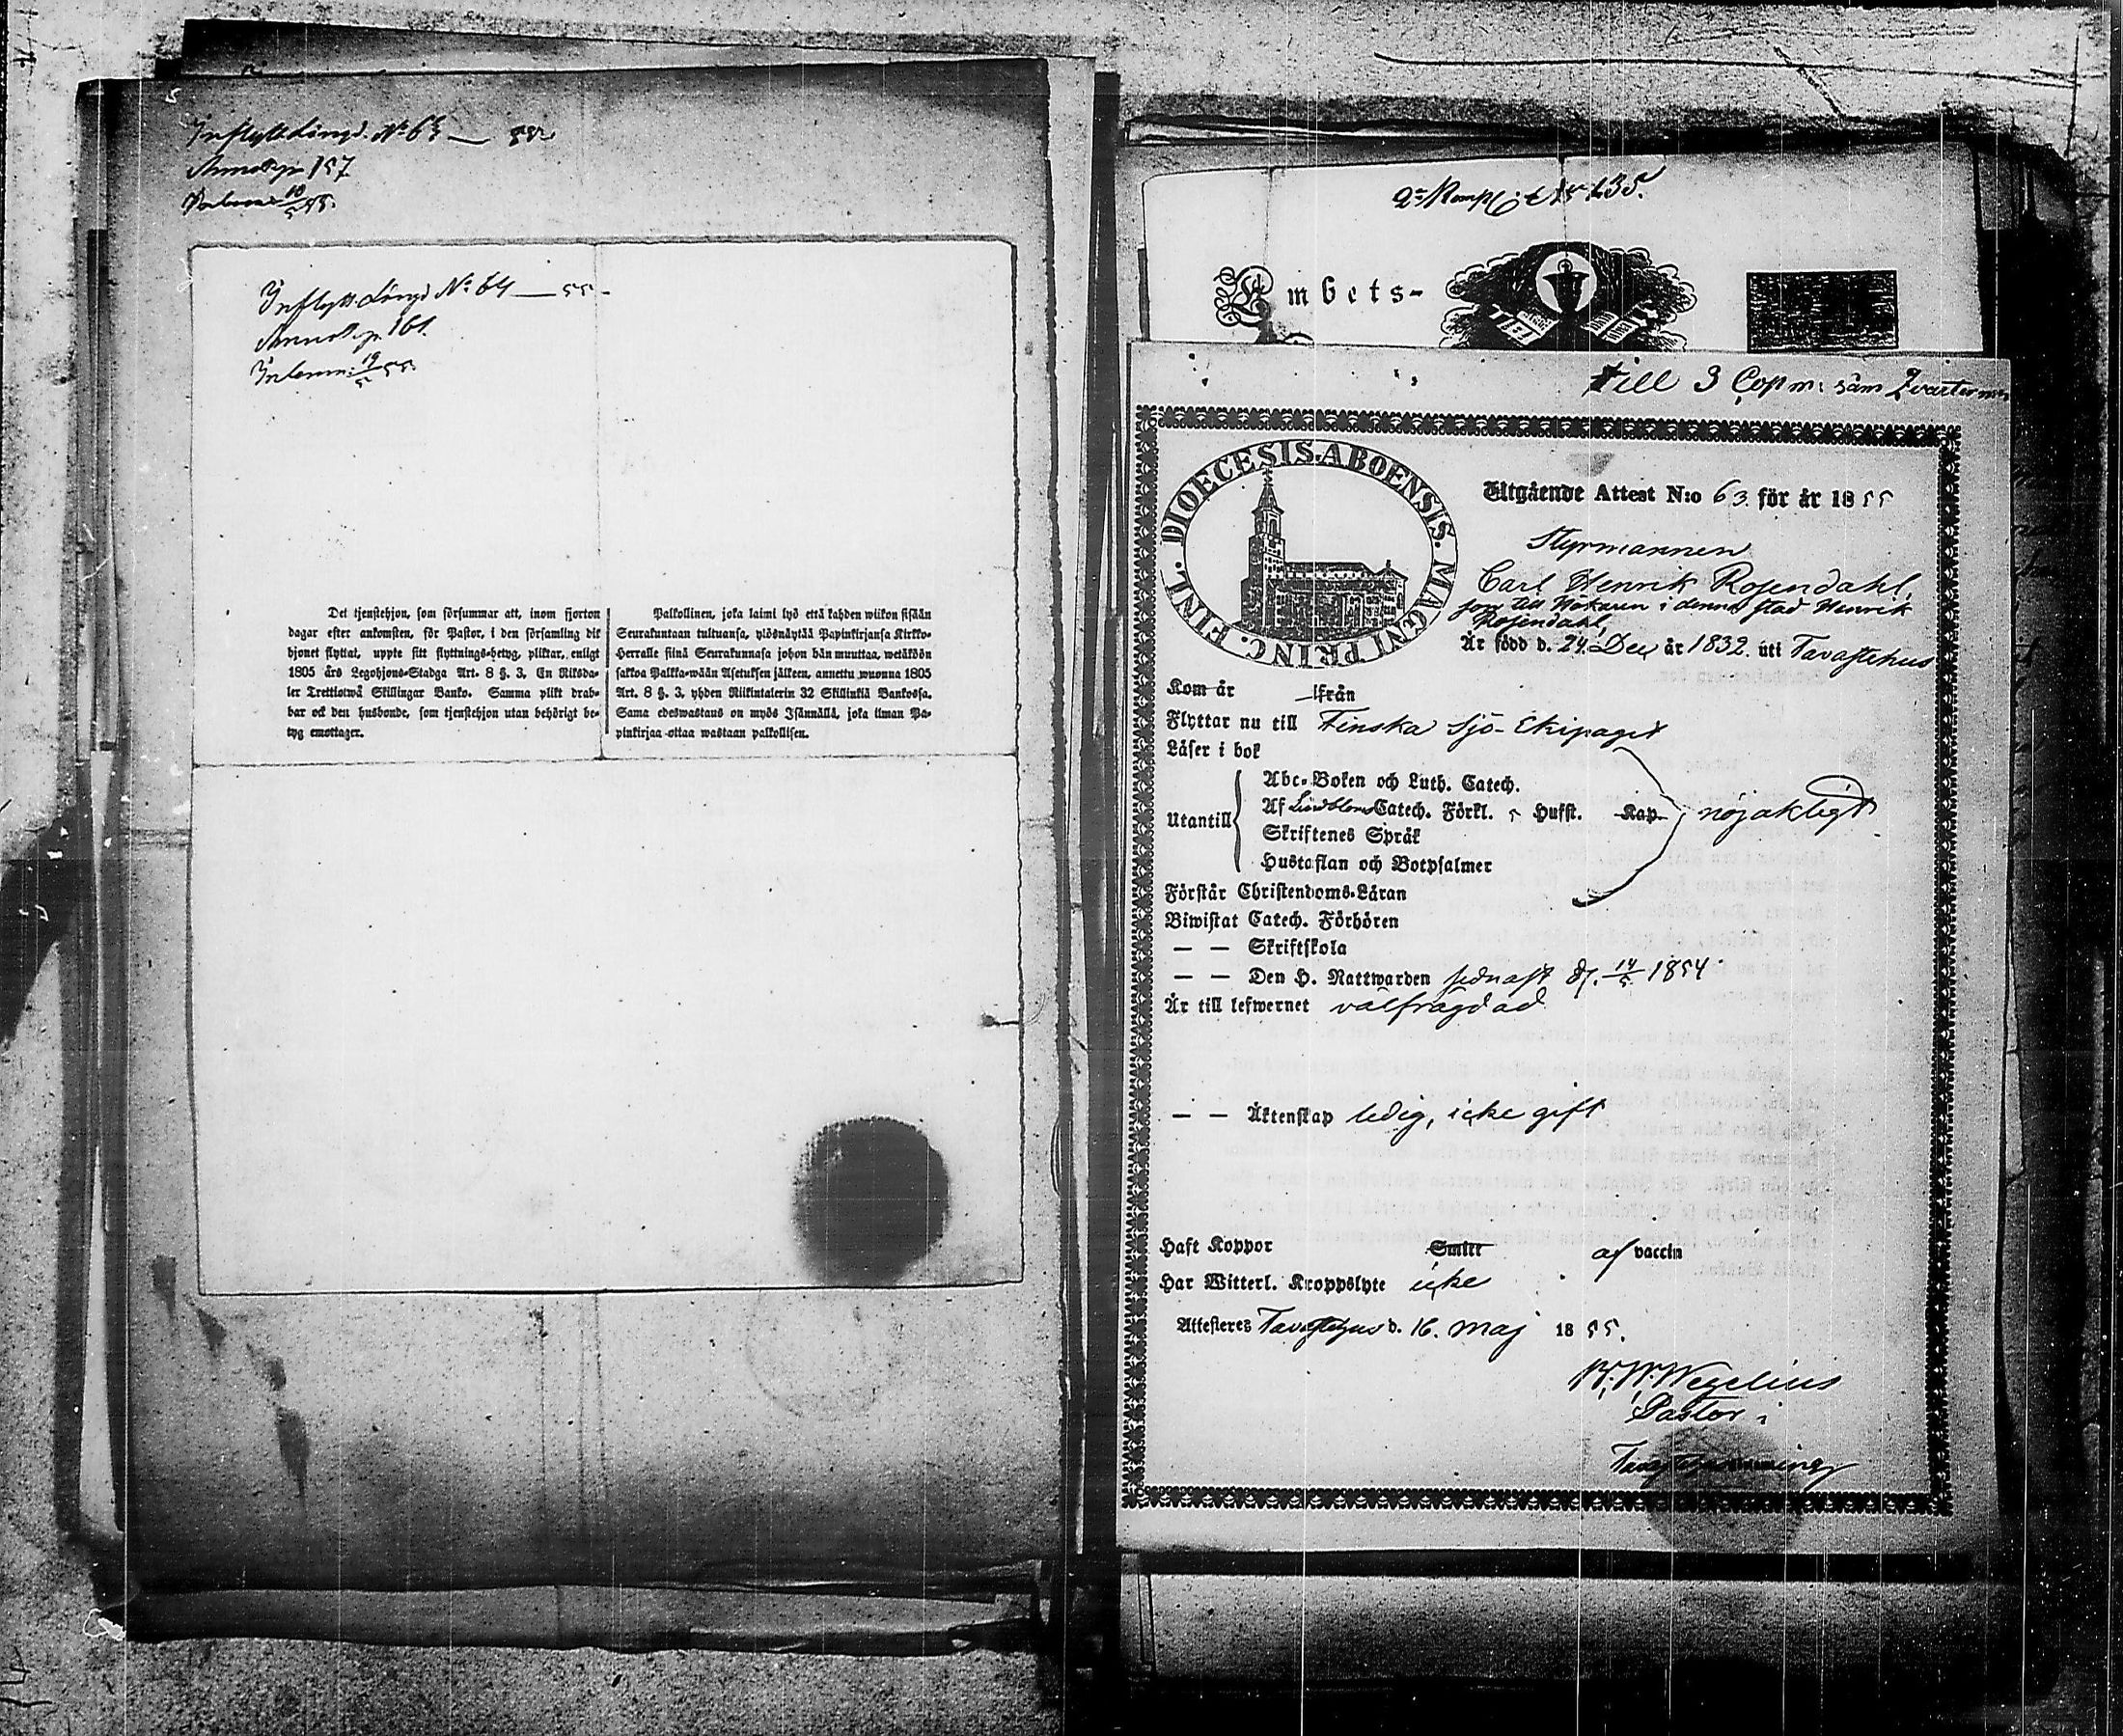 Inflytt. Längd. No 63 — 55.
Annot. p. 157
18/5 55.
Inflytt. Längd No 64 — 55.
Annot. p. 161.
Inlemn: 19/5 55.
Det tjenstehjon, som försummar att, inom fjorton
dagar efter ankomsten, för Pastor, i den församling dit
hjonet flyttat, uppte sitt flyttnings-betyg, pliktar, enligt
1805 års Legohjons-Stadga Art. 8 §. 3, En Riksda-
ler Trettiotwå Skillingar Banko. Samma plikt drab-
bar ock den husbonde, som tjenstehjon utan behörigt be-
tyg emottager.
Palkollinen, joka laimi lyö että kahden wiikon sisään
Seurakuntaan tultuansa, ylösnäytää Papinkirjansa Kirkko-
Herralle siinä Seurakunnasa johon hän muuttaa, wetäköön
sakkoa Palkka-wään Asetuksen jälkeen, annettu wuonna 1805
Art. 8 §. 3, yhden Riikintalerin 32 Skillinkiä Bankossa.
Sama edeswastaus on myös Isännällä, joka ilman Pa-
pinkirjaa ottaa wastaan palkollisen.
No 135.
Embets-
till 3 Comp m: säm
DIOECESIS. ABOENSIS. MAGNI PRINC. FINL.
Utgående Attest N:o 63. för år 1855
Styrmannen
Carl Henrik Rosendahl,
son till Hökaren i denna stad Henrik
Rosendahl,
Är född d. 24. Dec. år 1832. uti Tavastehus
Kom år ifrån
Flyttar nu till Finska Sjö-Ekipaget
Läser i bok
Utantill
Abc-Boken och Luth. Catech.
Af Lindbloms Catech. Förkl. 5 Hufst. Kap.
Skriftenes Språk
Hustaflan och Botpsalmer
nöjaktigt
Förstår Christendoms-Läran
Biwistat Catech. Förhören
— — Skriftskola
— — Den H. Nattwarden sednast d. 14/5 1854.
Är till lefwernet välfrägdad
— — Äktenskap ledig, icke gift
Haft Koppor Smitt af vaccin
Har Witterl. Kroppslyte icke
Attesteres Tavastehus d. 16. maj 1855.
Wegelius
Pastor i